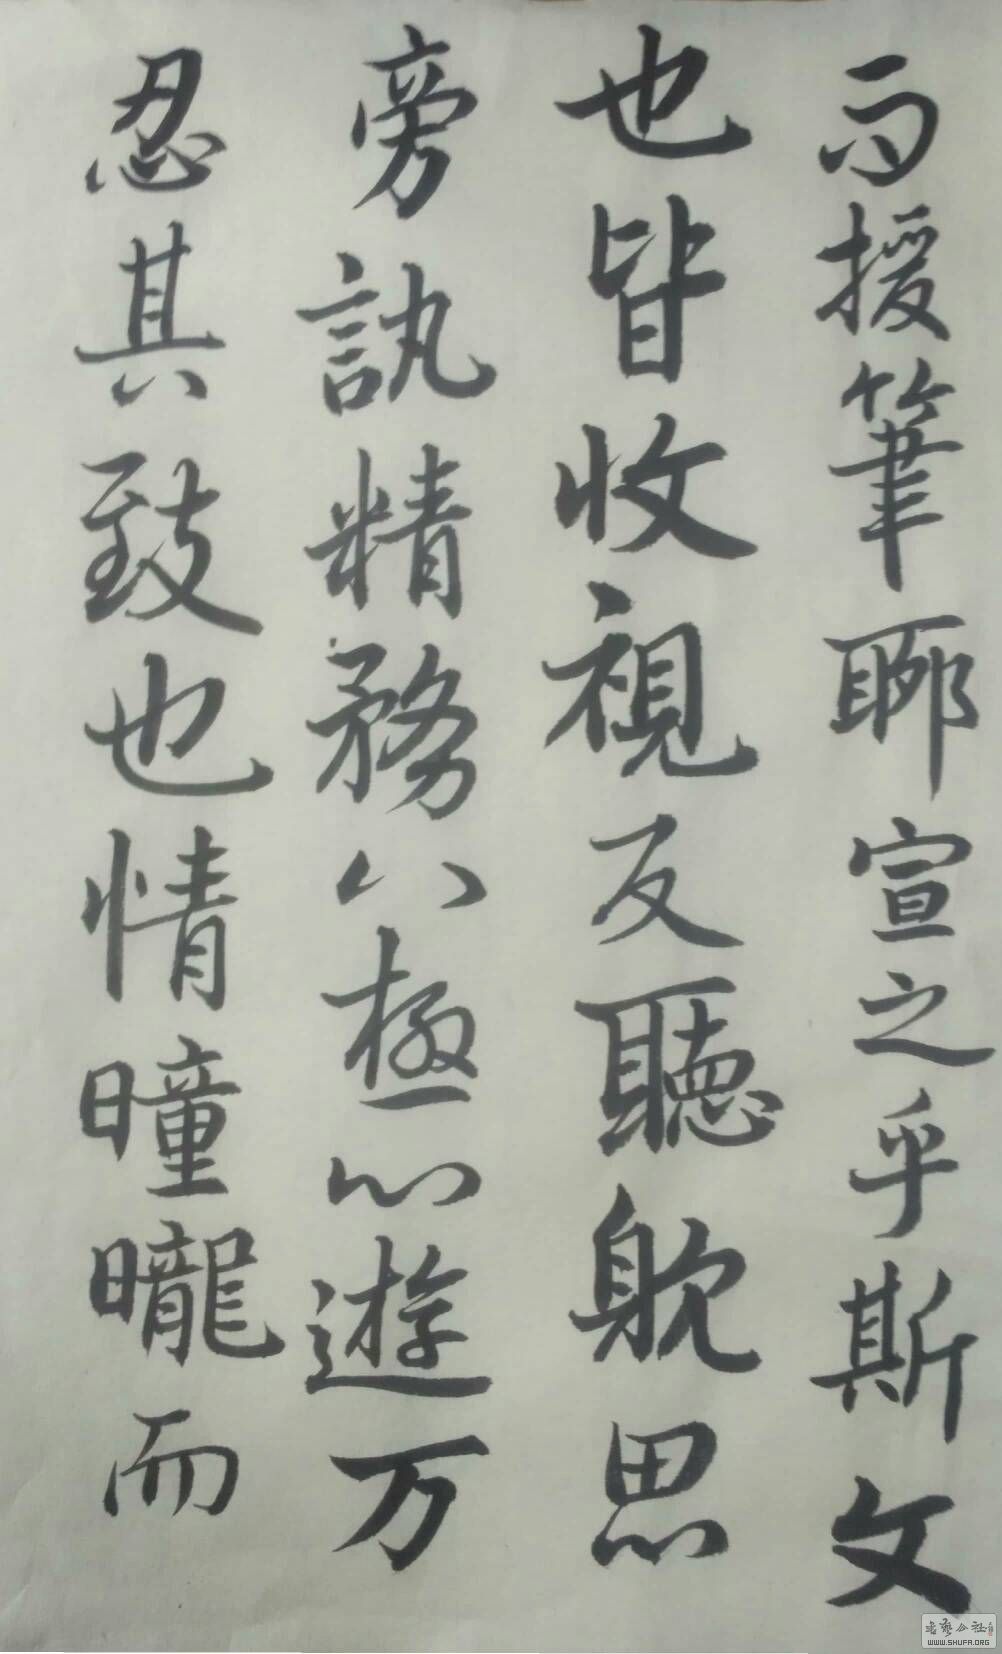 而援筆聊宣之乎斯文
也皆收視反聽躭思
旁訊精務八極心遊万
忍其致也情曈曨而
书艺公社
WWW.SHUFA.ORG